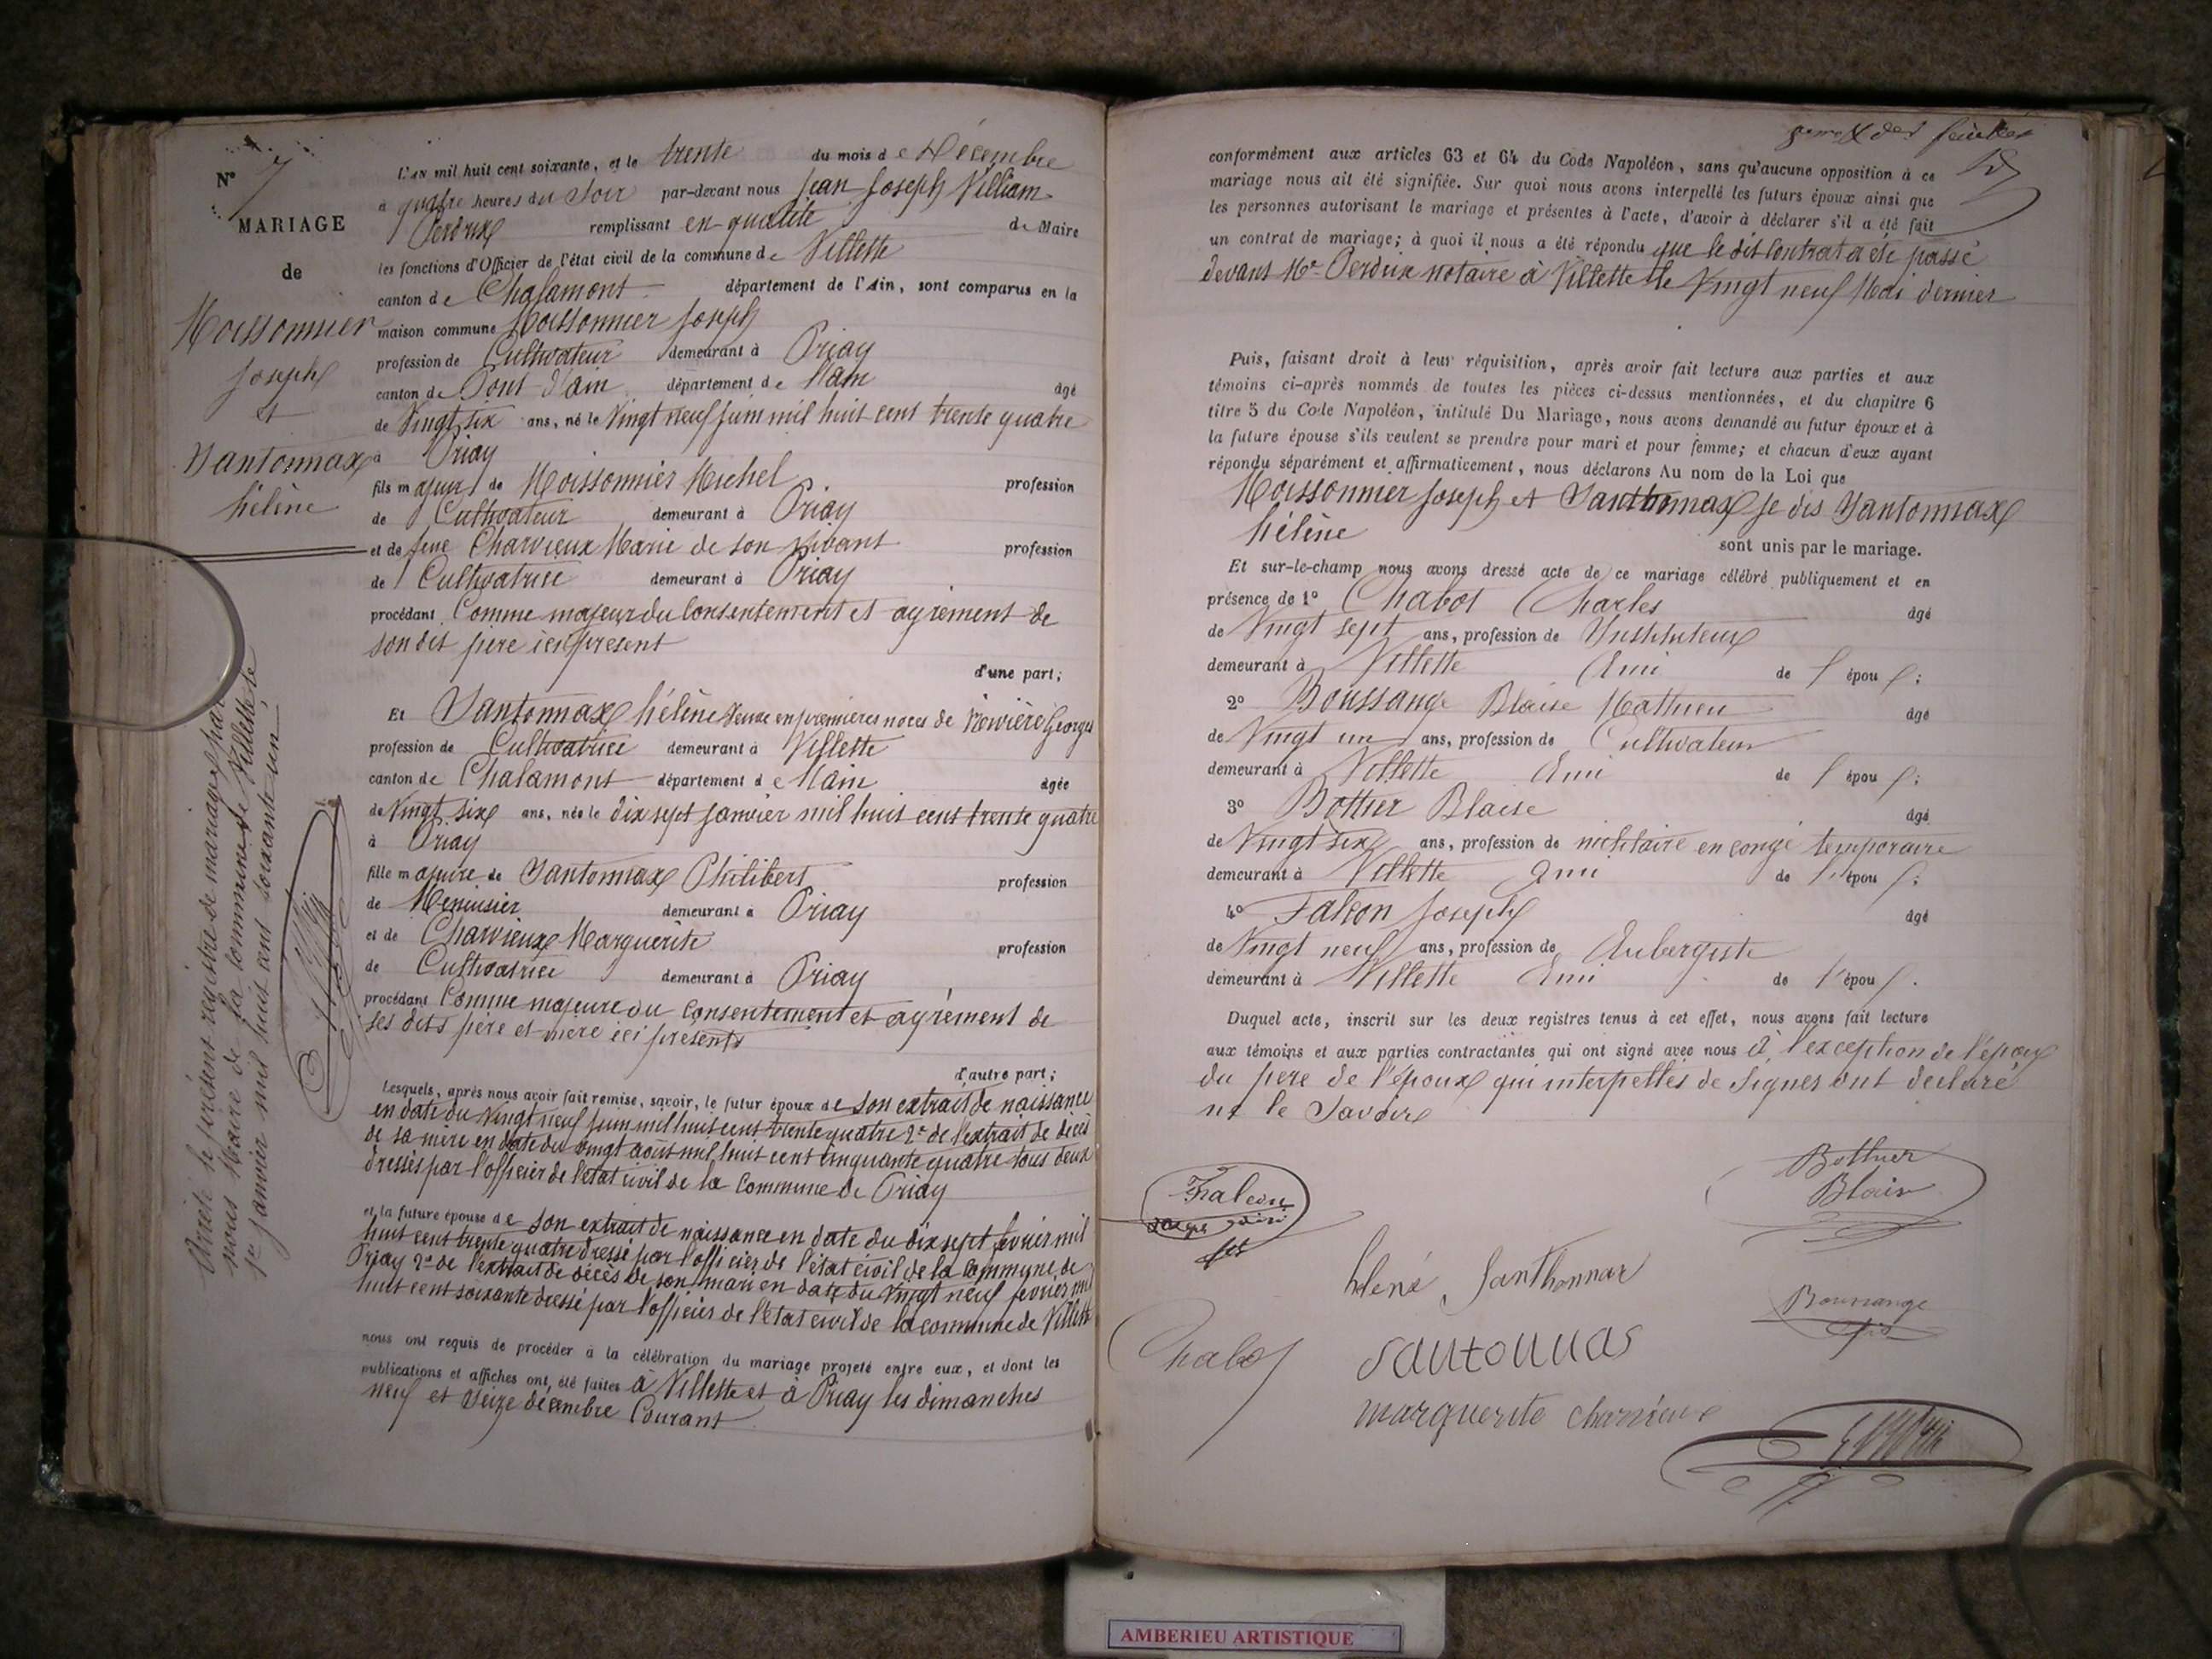 N° 7
MARIAGE
de
Moissonnier
Joseph
et
Santonnax
hélène
Arrêté le présent registre de mariages par
nous Maire de la commune de Villette le
1er janvier mil huit cent soixante un
L'AN mil huit cent soixante, et le trente du mois de Décembre
à quatre heures du Soir par-devant nous Jean Joseph Villiam
Perdrix remplissant en qualité de Maire
les fonctions d'Officier de l'état civil de la commune de Villette
canton de Chalamont département de l'Ain, sont comparus en la
maison commune Moissonnier Joseph
profession de Cultivateur demeurant à Priay
canton de Pont-d'ain département de l'ain âgé
de Vingt six ans, né le Vingt neuf juin mil huit cent trente quatre
à Priay
fils majeur de Moissonnier Michel profession
de Cultivateur demeurant à Priay
et de feue Charvieux Marie de son vivant profession
de Cultivatrice demeurant à Priay
procédant Comme majeur du Consentement et agrément de
son dit père ici présent
d'une part;
Et Santonnax hélène Veuve en premières noces de Rivière Georges
profession de Cultivatrice demeurant à Villette
canton de Chalamont département de l'ain âgée
de Vingt six ans, née le dix sept janvier mil huit cent trente quatre
à Priay
fille majeure de Santonnax Philibert profession
de Menuisier demeurant à Priay
et de Charvieux Marguerite profession
de Cultivatrice demeurant à Priay
procédant Comme majeure du Consentement et agrément de
ses dits père et mère ici présents
d'autre part;
Lesquels, après nous avoir fait remise, savoir, le futur époux de son extrait de naissance
en date du Vingt neuf juin mil huit cent trente quatre 2° de l'extrait de décès
de sa mère en date du vingt août mil huit cent cinquante quatre tous deux
dressés par l'officier de l'état civil de la Commune de Priay
et la future épouse de son extrait de naissance en date du dix sept février mil
huit cent trente quatre dressé par l'officier de l'état civil de la Commune de
Priay 2° de l'extrait de décès de son mari en date du Vingt neuf février mil
huit cent soixante dressé par l'officier de l'Etat civil de la commune de Villette
nous ont requis de procéder à la célébration du mariage projeté entre eux, et dont les
publications et affiches ont été faites à Villette et à Priay les dimanches
neuf et Seize décembre Courant
conformément aux articles 63 et 64 du Code Napoléon, sans qu'aucune opposition à ce
mariage nous ait été signifiée. Sur quoi nous avons interpellé les futurs époux ainsi que
les personnes autorisant le mariage et présentes à l'acte, d'avoir à déclarer s'il a été fait
un contrat de mariage; à quoi il nous a été répondu que le dit Contrat a été passé
devant Me Perdrix notaire à Villette le Vingt neuf Mai dernier
Puis, faisant droit à leur réquisition, après avoir fait lecture aux parties et aux
témoins ci-après nommés de toutes les pièces ci-dessus mentionnées, et du chapitre 6
titre 5 du Code Napoléon, intitulé Du Mariage, nous avons demandé au futur époux et à
la future épouse s'ils veulent se prendre pour mari et pour femme; et chacun d'eux ayant
répondu séparément et affirmativement, nous déclarons Au nom de la Loi que
Moissonnier Joseph et Santhomax je dis Santonnax
hélène
sont unis par le mariage.
Et sur-le-champ nous avons dressé acte de ce mariage célébré publiquement et en
présence de 1° Chabot Charles âgé
de Vingt sept ans, profession de Instituteur
demeurant à Villette Ami de l'épou ;
2° Boussange Blaise Mathieu âgé
de Vingt un ans, profession de Cultivateur
demeurant à Villette Ami de l'épou ;
3° Bottier Blaise âgé
de Vingt six ans, profession de militaire en congé temporaire
demeurant à Villette Ami de l'épou ;
4° Falcon Joseph âgé
de Vingt neuf ans, profession de Aubergiste
demeurant à Villette Ami de l'épou .
Duquel acte, inscrit sur les deux registres tenus à cet effet, nous avons fait lecture
aux témoins et aux parties contractantes qui ont signé avec nous à l'exception de l'époux
du père de l'époux qui interpellés de Signer ont déclaré
ne le Savoir
Falcon
Bottier
Blaise
héléne Santhonnax
Boussange
Chabot
santonnas
marguerite charvieux
AMBERIEU ARTISTIQUE